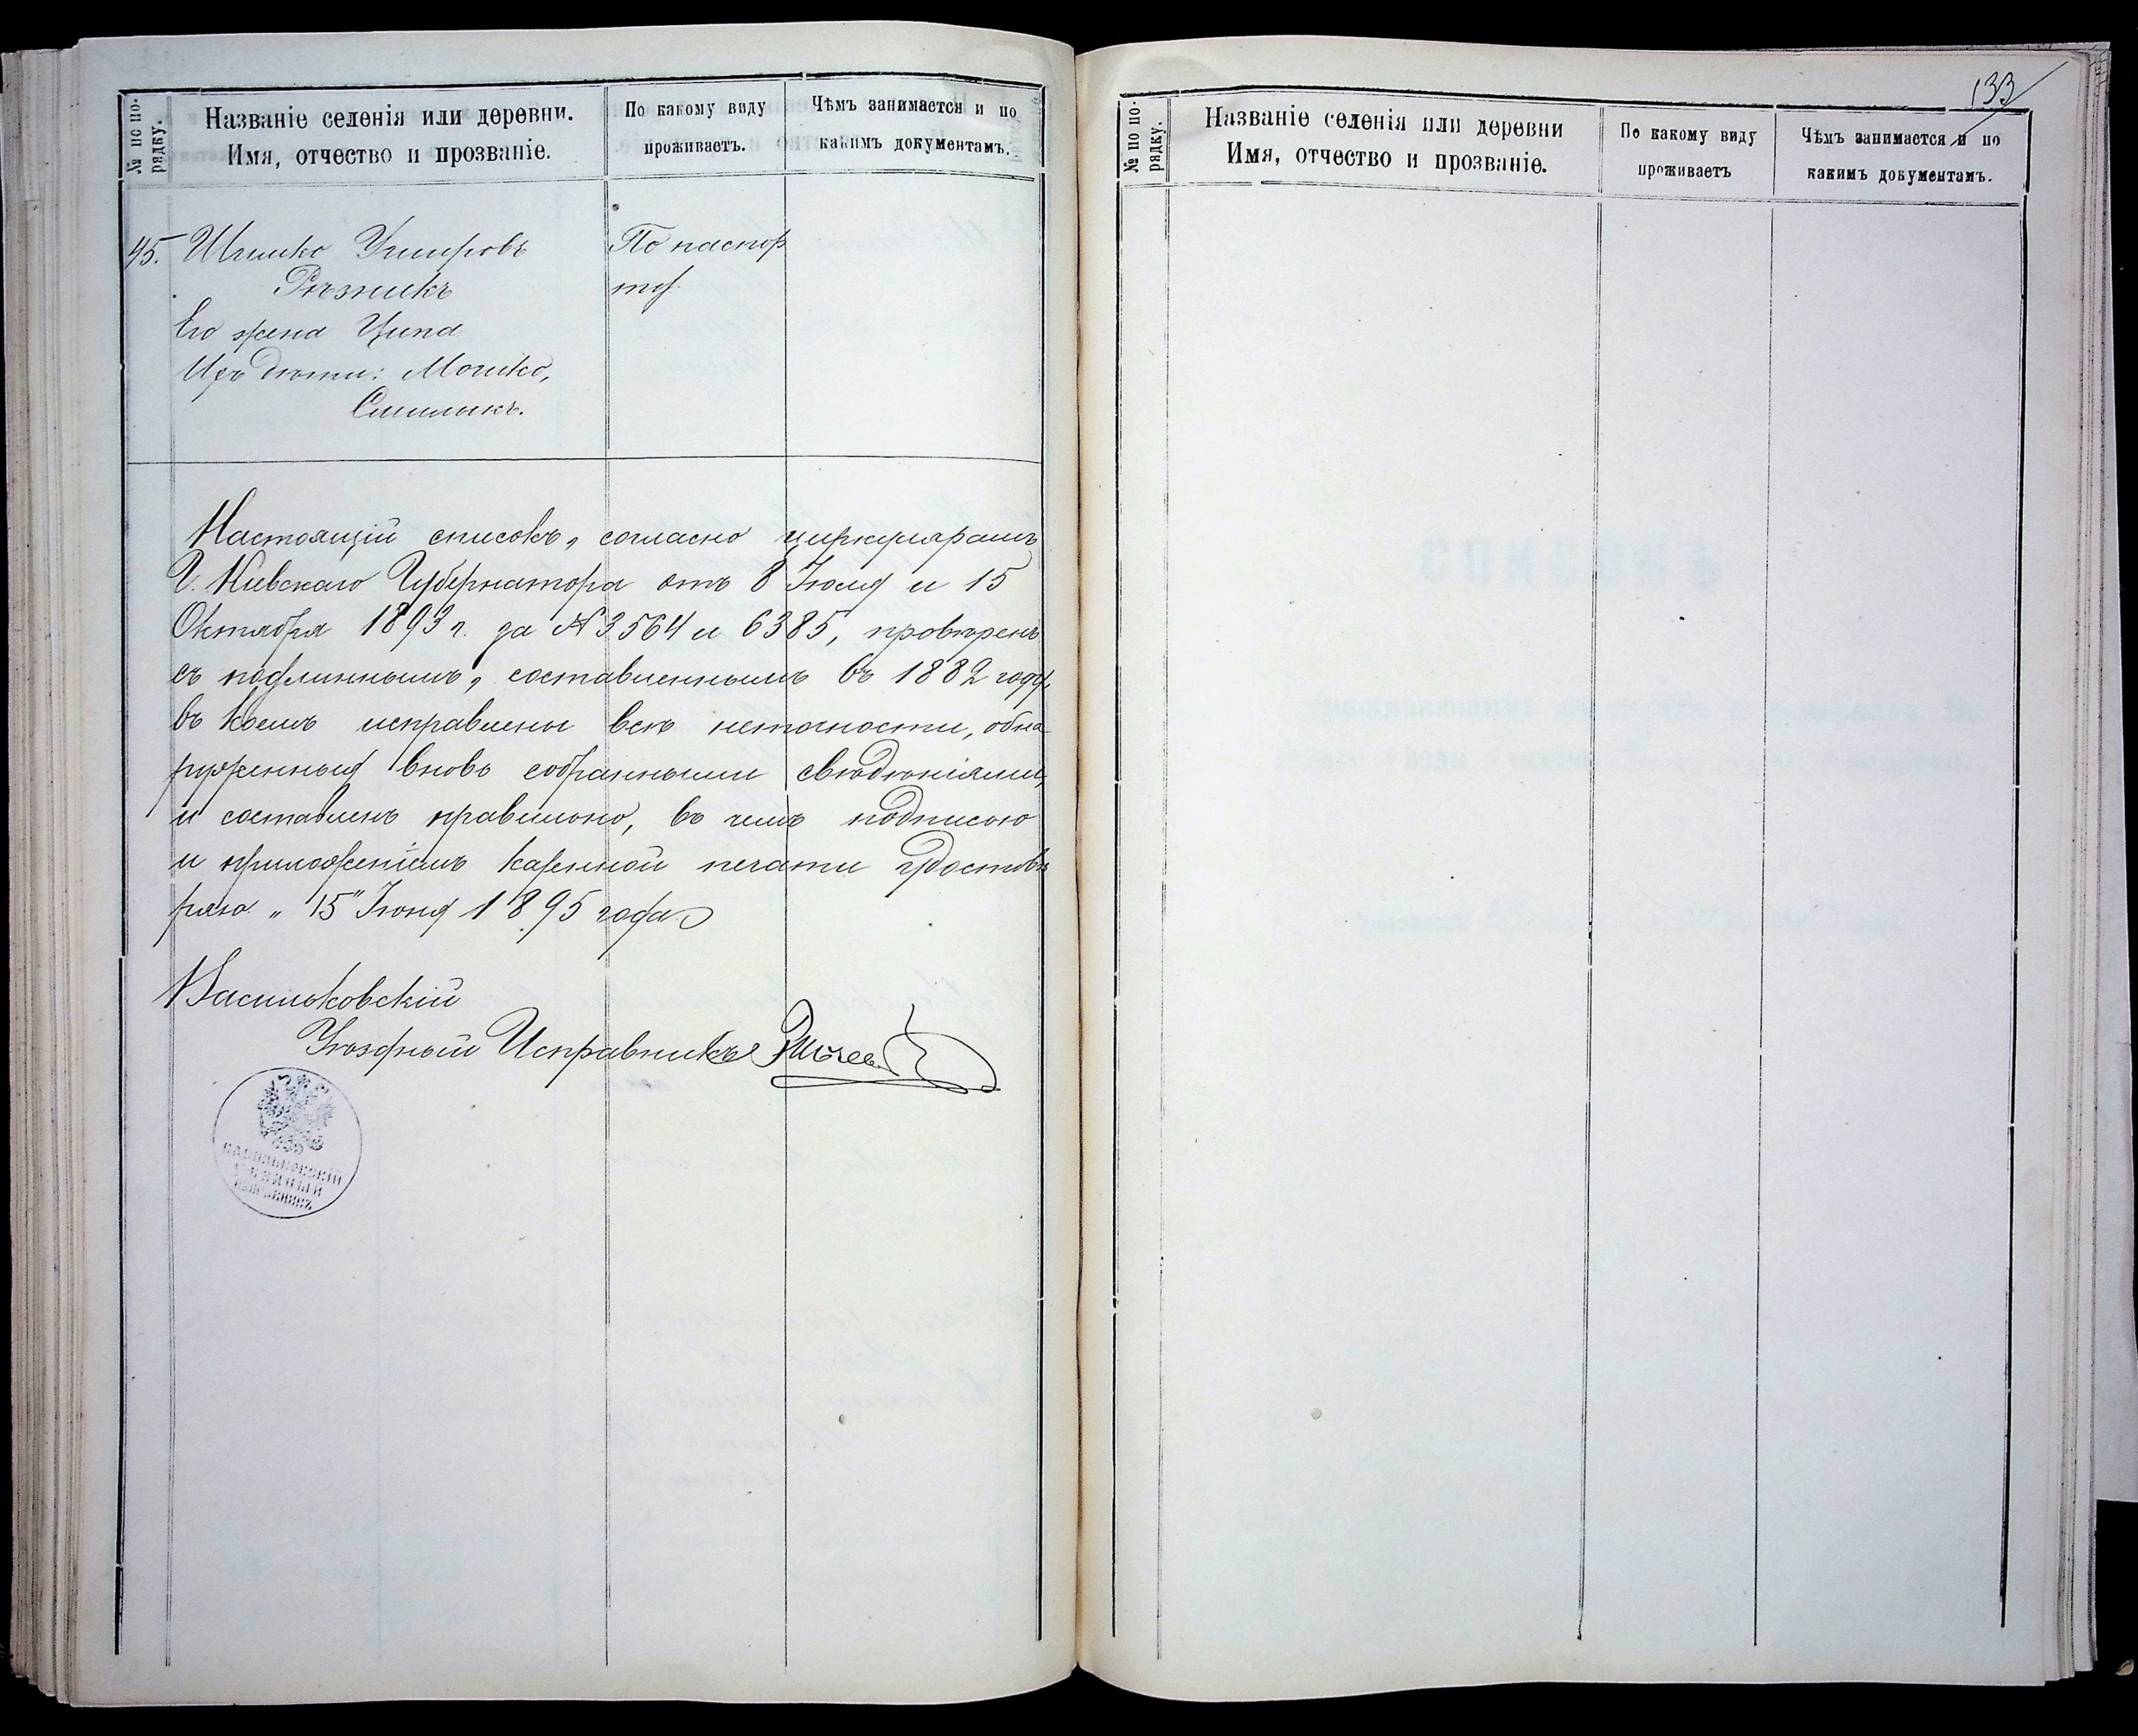 № по по-
рядку.
Названіе селенія или деревни.
Имя, отчество и прозваніе.
По какому виду
проживаетъ.
Чѣмъ занимается и по
какимъ документамъ.
45. Ицко Умировъ По паспор
Рѣзникъ ту.
Его жена Ципа
Ихъ дѣти: Мошко,
Настоящій списокъ, согласно циркулярамъ
Г. Кіевскаго Губернатора отъ 8 Іюля и 15
Октября 1893 г. за № 3564 и 6385, провѣренъ
съ подлиннымъ, составленнымъ въ 1882 году,
въ коемъ исправлены всѣ неточности, обна
руженныя вновь собранными свѣдѣніями,
и составленъ правильно, въ чемъ подписью
и приложеніемъ казенной печати удостовѣ
ряю. „15" Іюня 1895 года
Васильковскій
Уѣздный Исправникъ
Васильковскій
уѣздный
исправникъ
133
№ по по-
рядку.
Названіе селенія или деревни
Имя, отчество и прозваніе.
По какому виду
проживаетъ
Чѣмъ занимается и по
какимъ документамъ.